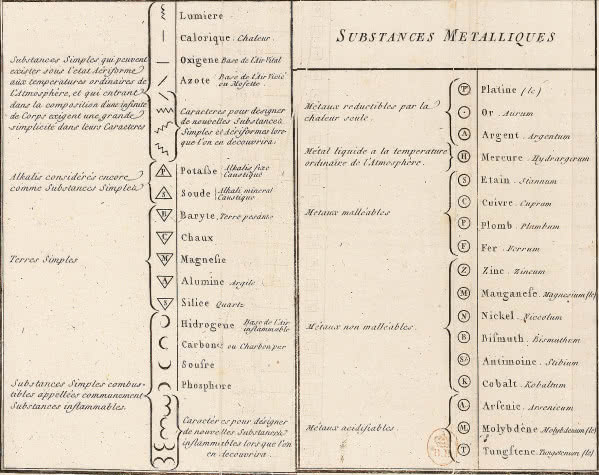 Lumiere
Calorique Chaleur.
Substances Simples qui peuvent
exister sous l'etat Aëriforme
aux temperatures ordinaires de
l'Atmosphère, et qui entrant
dans la composition d'une infinité
de Corps exigent une grande
simplicité dans leurs Caracteres
Oxigene Base de l'Air Vital
Azote Base de l'Air Vicié
ou Mofette
Caracteres pour désigner
de nouvelles Substances
Simples et Aëriformes lors-
que l'on en decouvrira.
Alkalis considérés encore
comme Substances Simples
P Potasse Alkali fixe
Caustique
S Soude Alkali mineral
Caustique
Terres Simples
B Baryte, Terre pesante
C Chaux
M Magnesie
A Alumine Argile
S Silice Quartz
Substances Simples combus-
tibles appellées communement
Substances inflammables.
Hidrogene Base de l'Air
inflammable
Carbone ou Charbon pur
Soufre
Phosphore
Caracteres pour désigner
de nouvelles Substances
inflammables lors que l'on
en decouvrira.
SUBSTANCES METALLIQUES
Métaux reductibles par la
chaleur seule.
P Platine (le)
Or . Aurum
A Argent . Argentum
Métal liquide a la temperature
ordinaire de l'Atmosphère.
H Mercure . Hydrargirum
Métaux malléables
S Etain . Stannum
C Cuivre . Cuprum
P Plomb . Plumbum
F Fer . Ferrum
Métaux non malléables.
Z Zinc . Zincum
M Manganese . Magnesium (le)
N Nickel . Niccolum
B Bismuth . Bismuthum
Sb Antimoine . Stibium
K Cobalt . Kobaltum
Métaux acidifiables.
A Arsenic . Arsenicum
M Molybdène Molybdenum (le)
T Tungstene . Tungstenum (le)